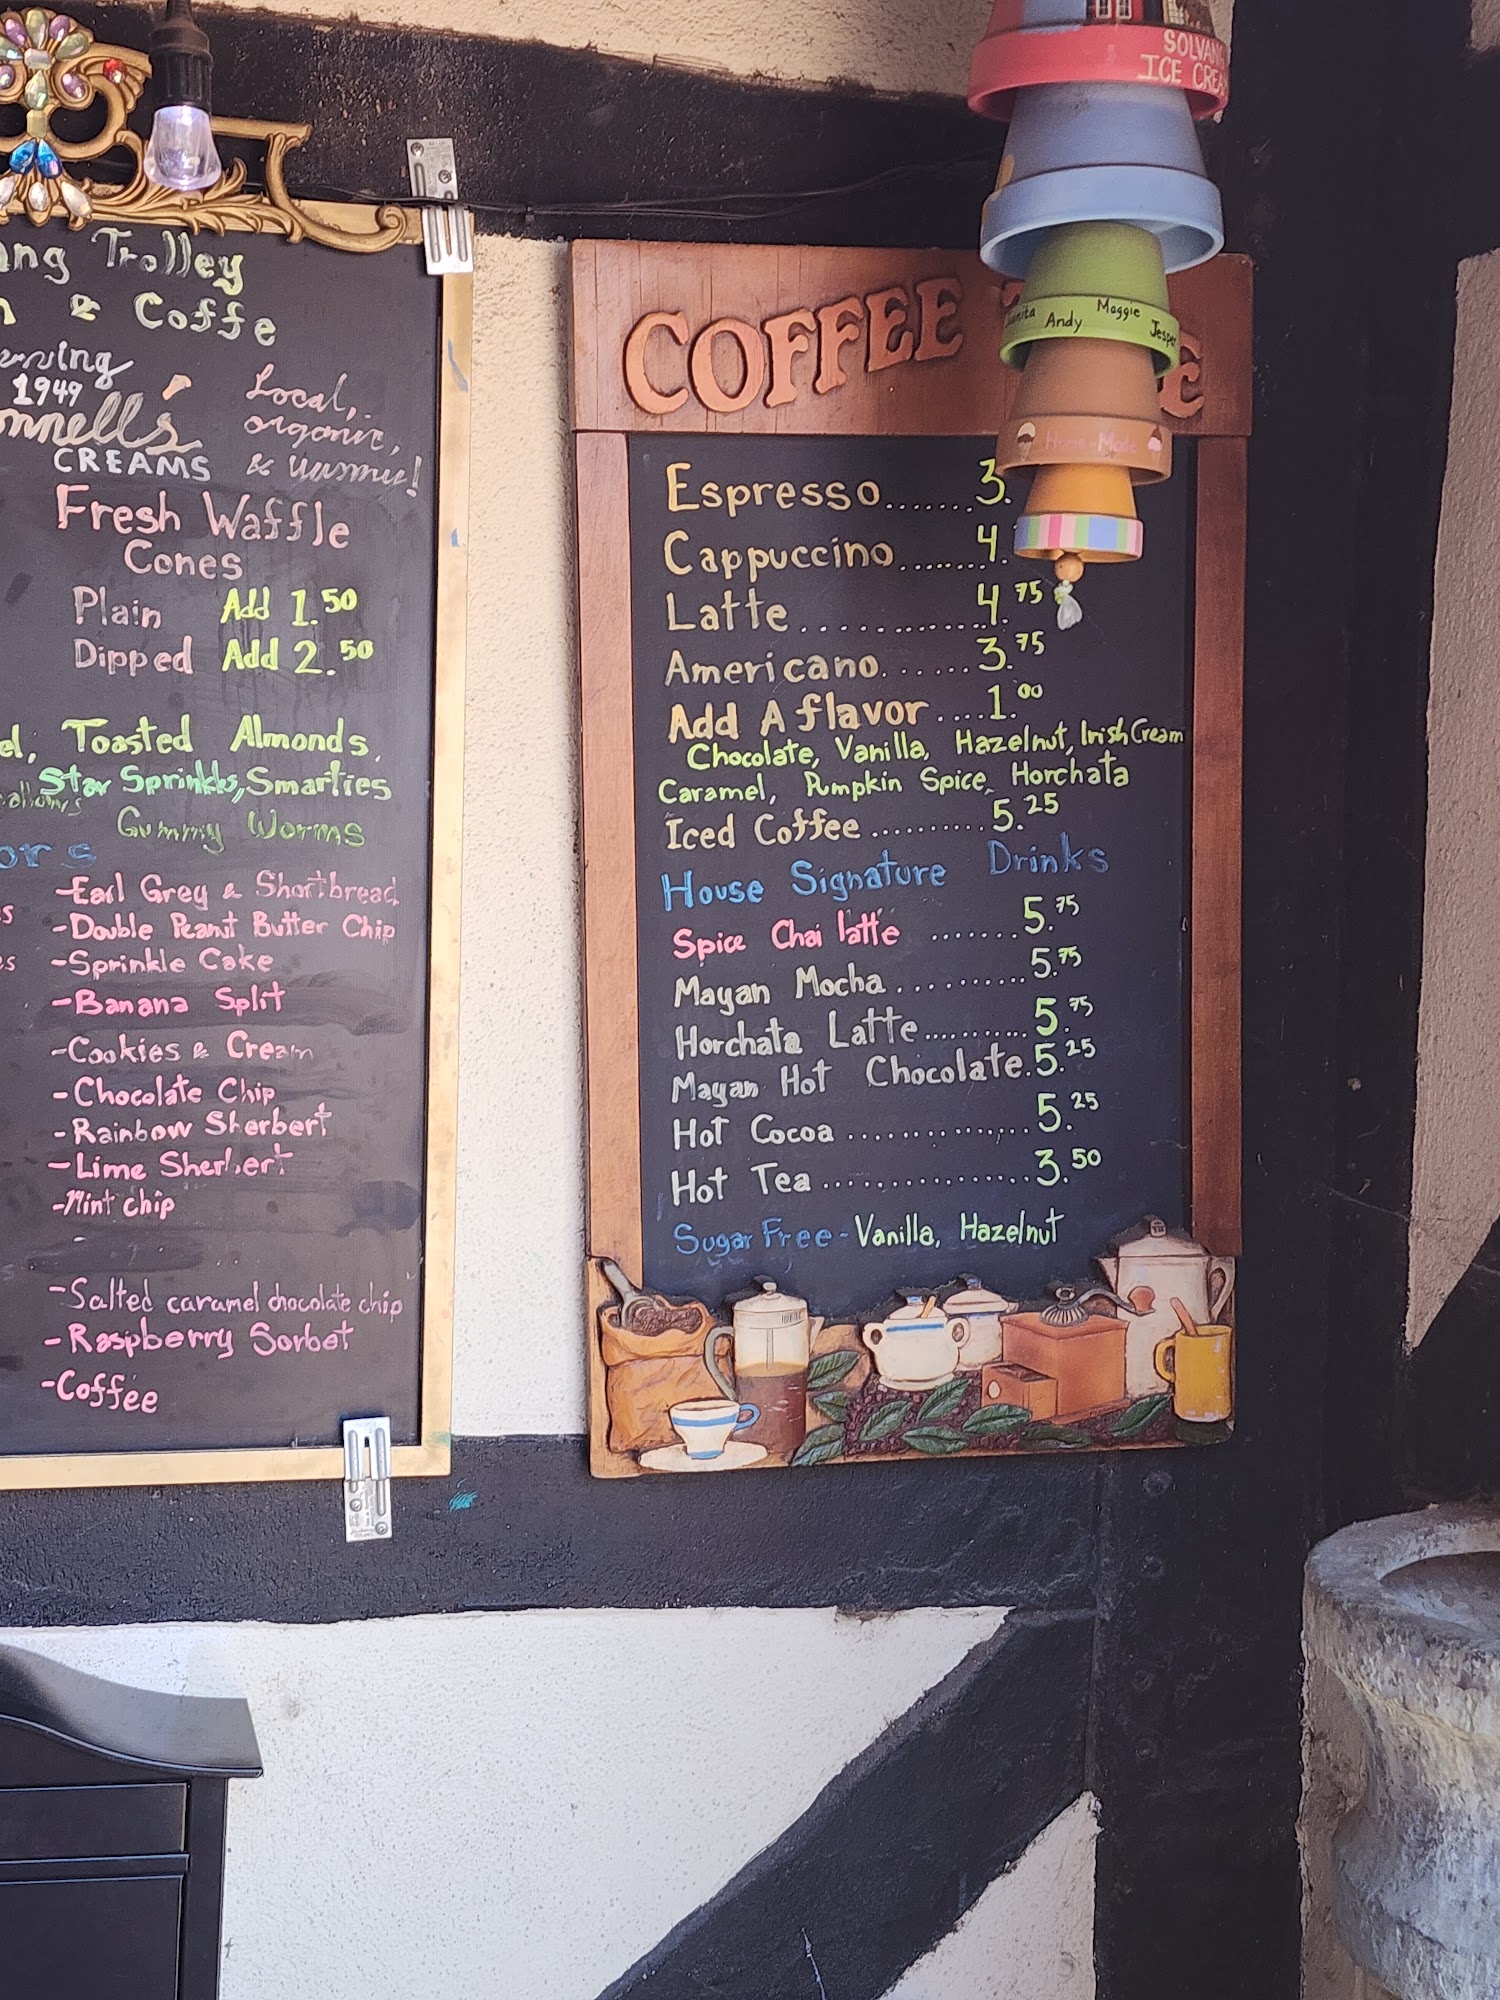 Trolley
& Coffe
1949
CREAMS
Local,
organic,
& yummy!
Fresh Waffle
Cones
Plain Add 1.50
Dipped Add 2.50
Toasted Almonds,
Star Sprinkles, Smarties
Gummy Worms
-Earl Grey & Shortbread
-Double Peanut Butter Chip
-Sprinkle Cake
-Banana Split
-Cookies & Cream
-Chocolate Chip
-Rainbow Sherbert
-Lime Sherbert
-Mint chip
-Salted caramel chocolate chip
-Raspberry Sorbet
-Coffee
SOLVANG
ICE CREAM
Andy Maggie Jesper
Home-Made
COFFEE
Espresso.......3.
Cappuccino.......4.
Latte.............4.75
Americano......3.75
Add A flavor....1.00
Chocolate, Vanilla, Hazelnut, Irish Cream
Caramel, Pumpkin Spice, Horchata
Iced Coffee..........5.25
House Signature Drinks
Spice Chai latte.......5.75
Mayan Mocha..........5.75
Horchata Latte..........5.75
Mayan Hot Chocolate.5.25
Hot Cocoa..............5.25
Hot Tea................3.50
Sugar Free-Vanilla, Hazelnut